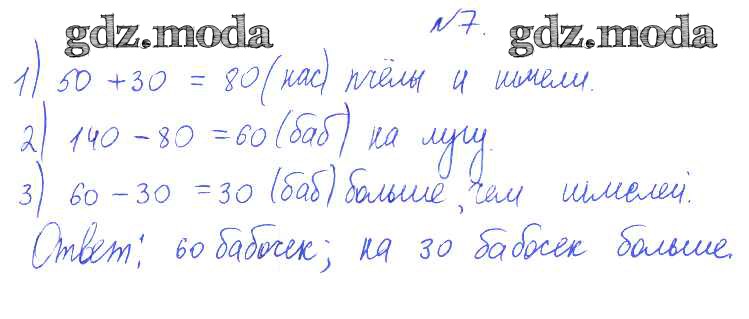 №7.
gdz.moda gdz.moda
1) 50 + 30 = 80 (нас) пчёлы и шмели.
2) 140 - 80 = 60 (баб) на лугу.
3) 60 - 30 = 30 (баб) больше, чем шмелей.
Ответ: 60 бабочек; на 30 бабосек больше.